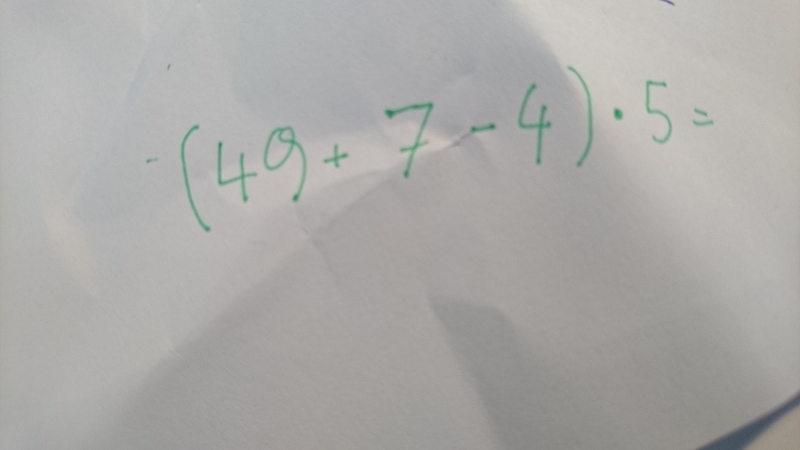 -(49+7-4)·5=